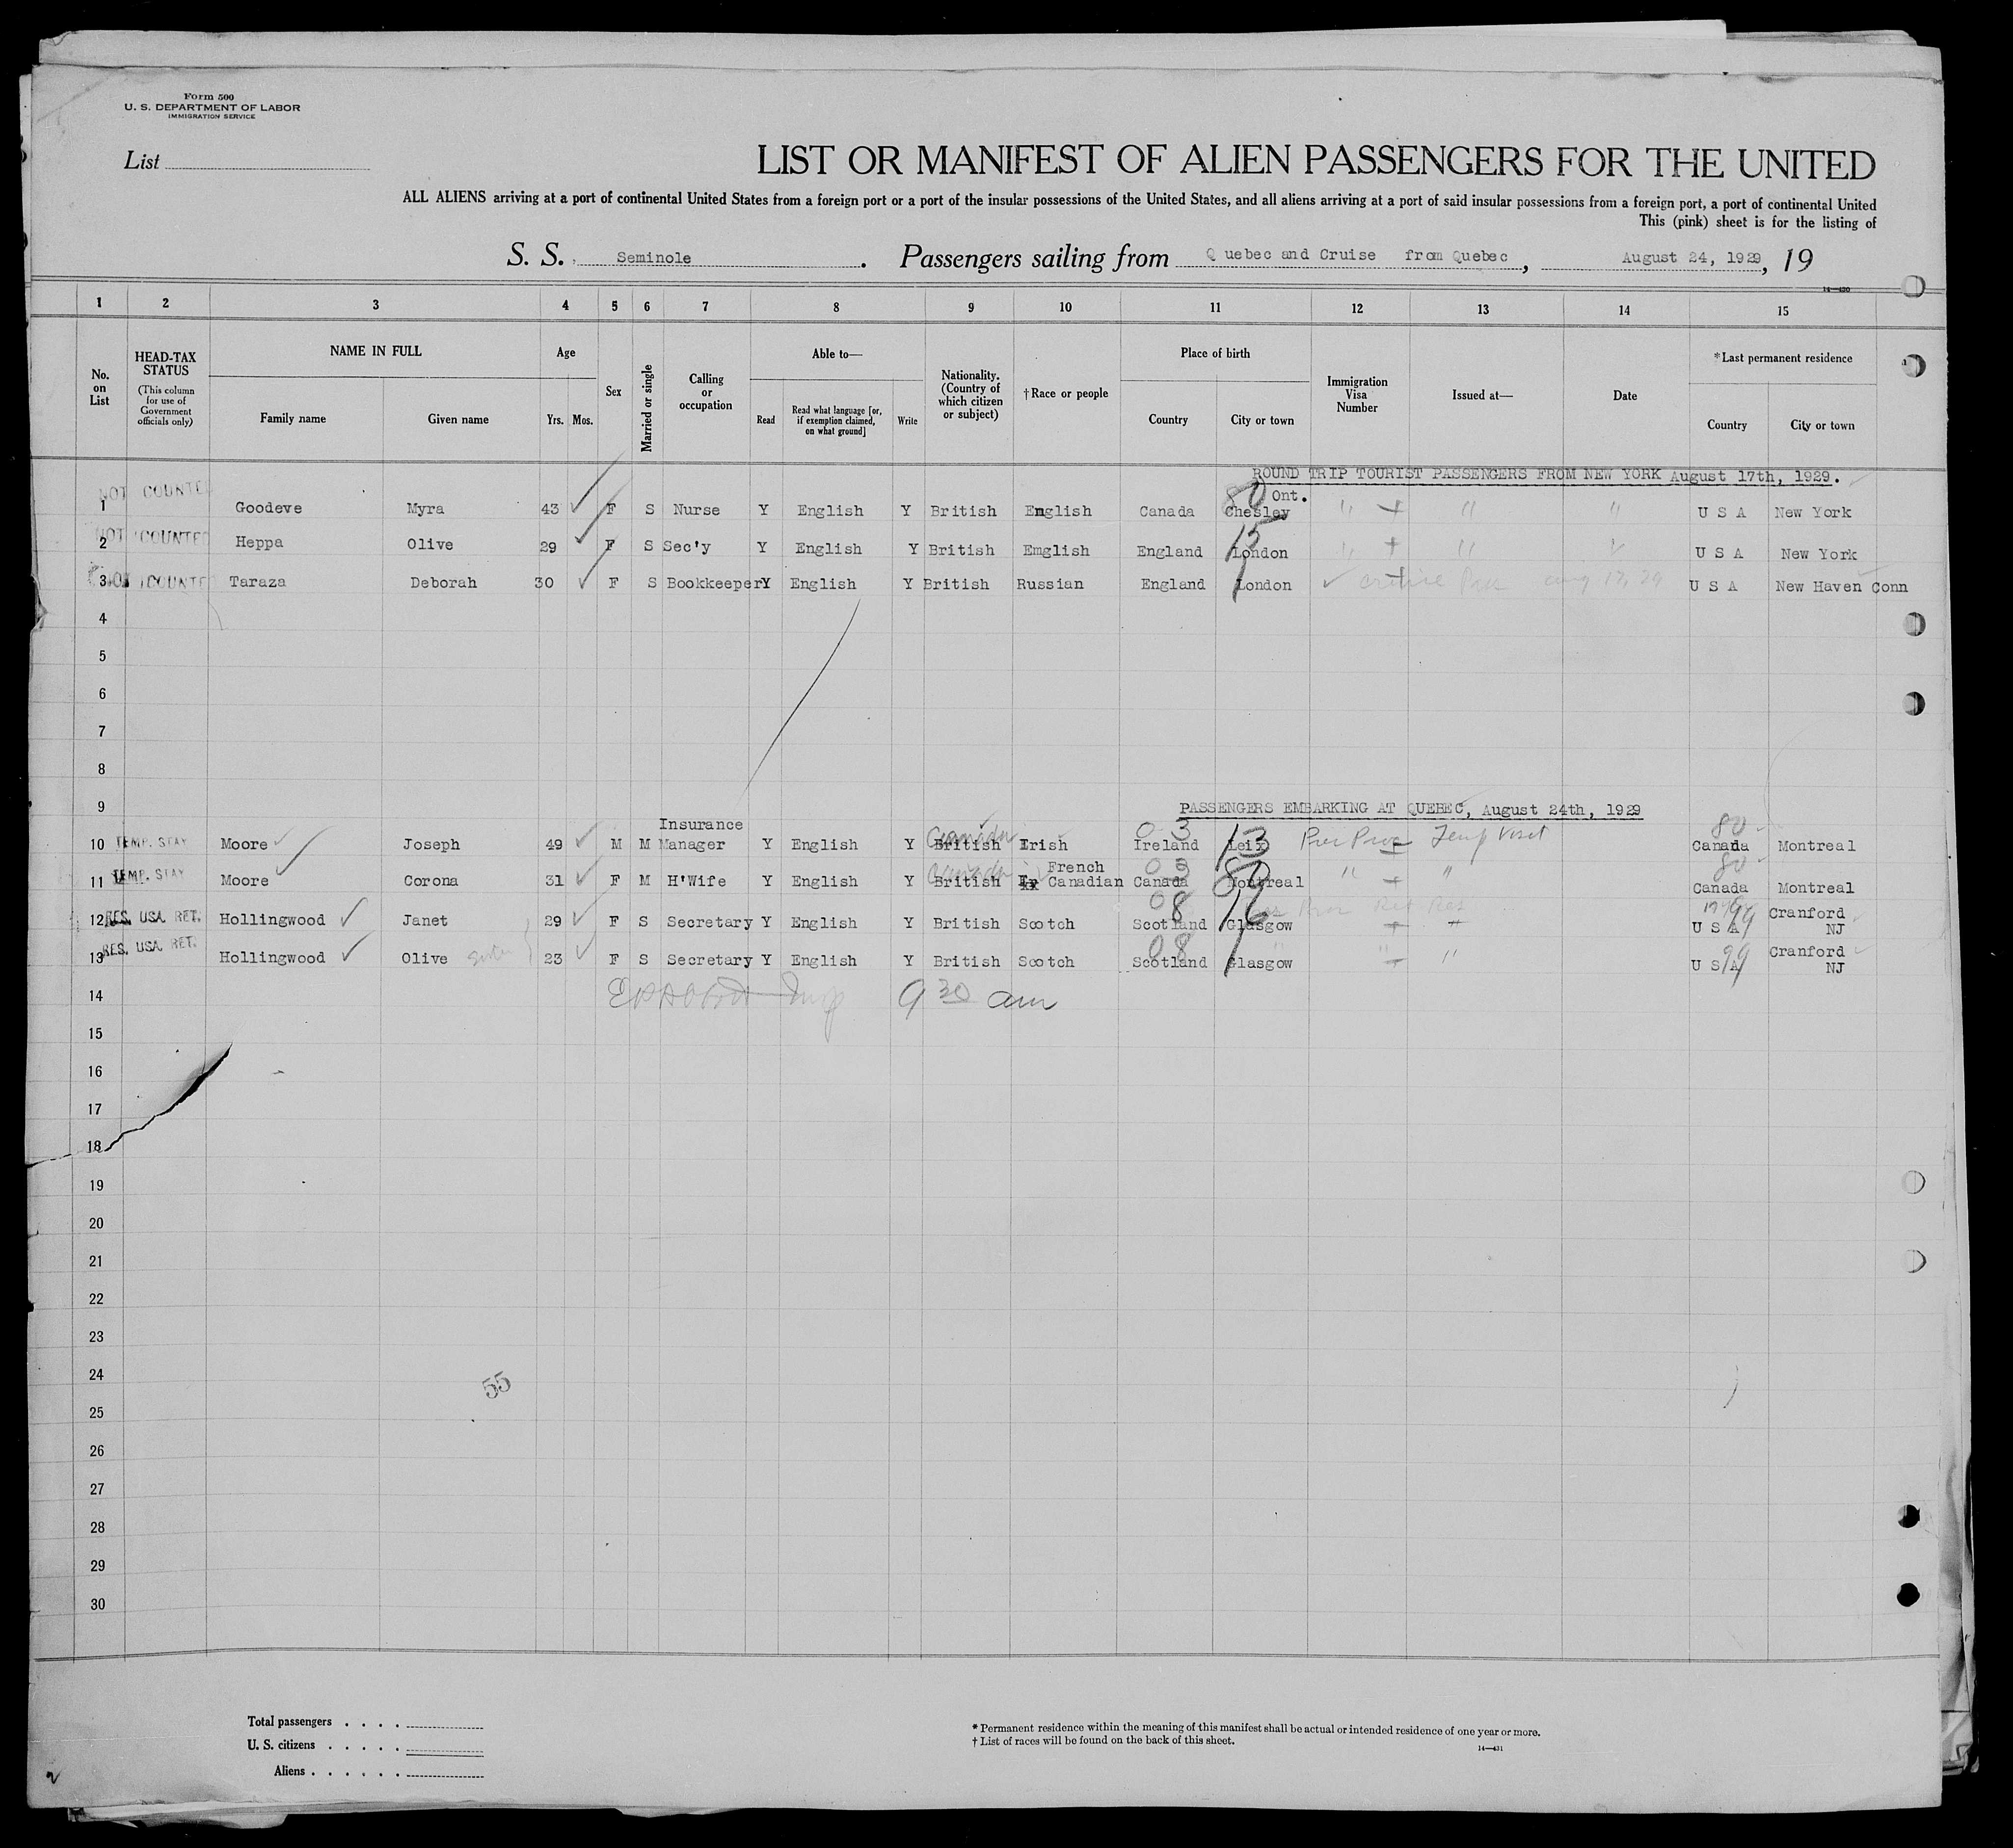 Form 500
U. S. DEPARTMENT OF LABOR
IMMIGRATION SERVICE
List
LIST OR MANIFEST OF ALIEN PASSENGERS FOR THE UNITED
ALL ALIENS arriving at a port of continental United States from a foreign port or a port of the insular possessions of the United States, and all aliens arriving at a port of said insular possessions from a foreign port, a port of continental United
This (pink) sheet is for the listing of
S. S. Seminole. Passengers sailing from Quebec and Cruise from Quebec, August 24, 1929, 19
14—430
1 2 3 4 5 6 7 8 9 10 11 12 13 14 15
No. on List
HEAD-TAX STATUS (This column for use of Government officials only)
NAME IN FULL Family name Given name
Age Yrs. Mos.
Sex
Married or single
Calling or occupation
Able to— Read Read what language [or, if exemption claimed, on what ground] Write
Nationality. (Country of which citizen or subject)
†Race or people
Place of birth Country City or town
Immigration Visa Number
Issued at—
Date
*Last permanent residence Country City or town
ROUND TRIP TOURIST PASSENGERS FROM NEW YORK August 17th, 1929.
80 Ont.
1 NOT COUNTE Goodeve Myra 43 F S Nurse Y English Y British English Canada Chesley " " " U S A New York
15
2 NOT COUNTE Heppa Olive 29 F S Sec'y Y English Y British Emglish England London " " " U S A New York
3 NOT COUNTE Taraza Deborah 30 F S Bookkeeper Y English Y British Russian England London aug 17, 29 U S A New Haven Conn
4
5
6
7
8
9
PASSENGERS EMBARKING AT QUEBEC, August 24th, 1929
Insurance Canada 03 13 80
10 TEMP. STAY Moore Joseph 49 M M Manager Y English Y British Irish Ireland Temp Visit Canada Montreal
Canada French 03 80 80
11 TEMP. STAY Moore Corona 31 F M H'Wife Y English Y British Canadian Canada Montreal " " Canada Montreal
08 16 99
12 RES. USA. RET. Hollingwood Janet 29 F S Secretary Y English Y British Scotch Scotland Glasgow U S A Cranford NJ
08 99
13 RES. USA. RET. Hollingwood Olive sister 23 F S Secretary Y English Y British Scotch Scotland Glasgow " " U S A Cranford NJ
14 Insp 9 30 am
15
16
17
18
19
20
21
22
23
24
55
25
26
27
28
29
30
Total passengers . . . .
U. S. citizens . . . . .
Aliens . . . . . .
* Permanent residence within the meaning of this manifest shall be actual or intended residence of one year or more.
† List of races will be found on the back of this sheet.
14—431